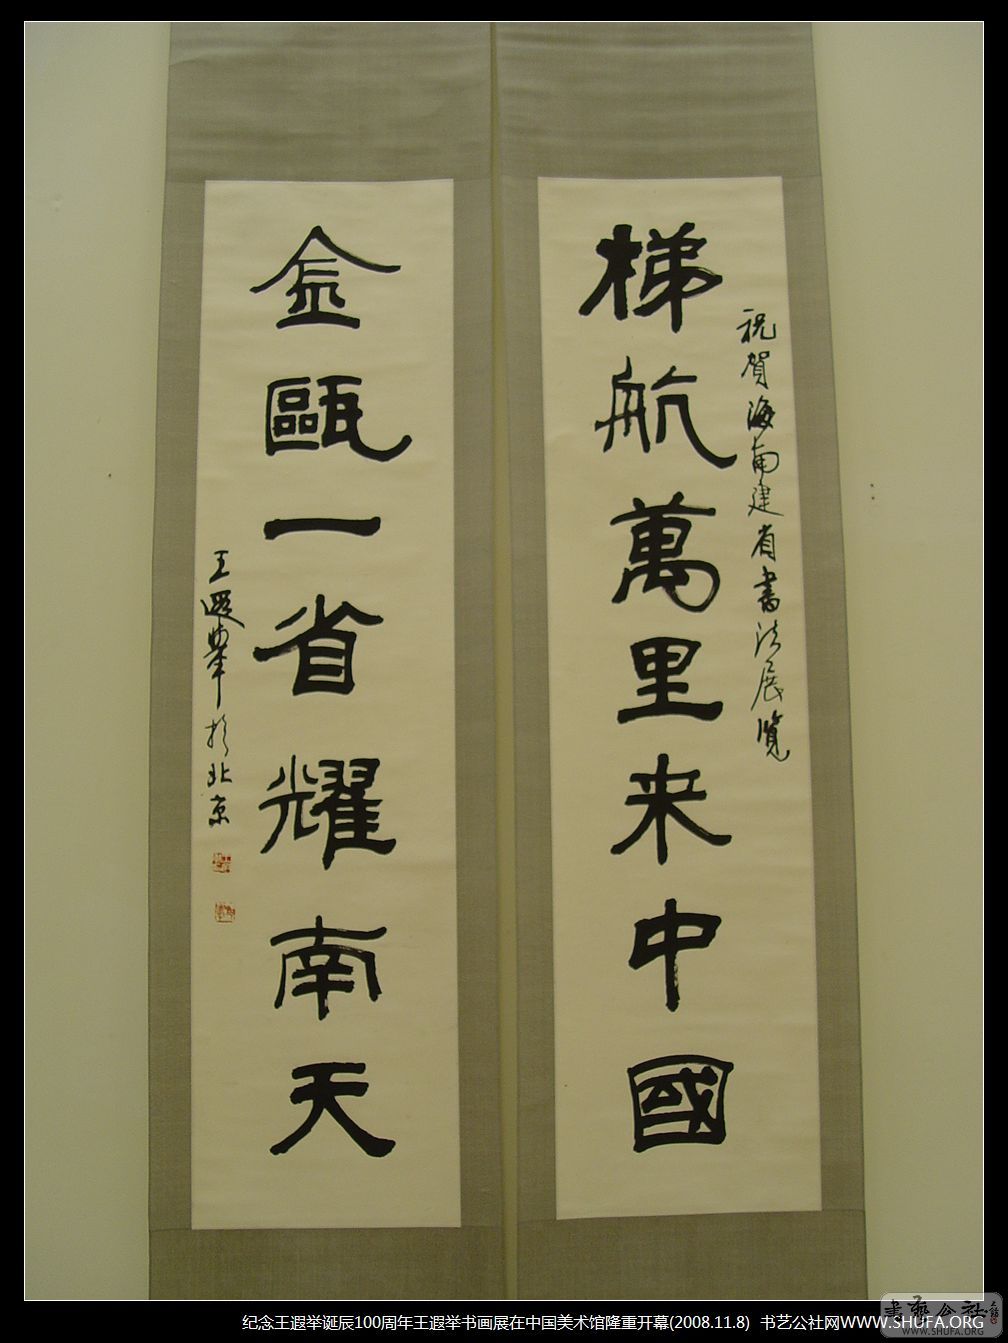 梯航萬里来中國
祝賀海南建省書法展覽
金甌一省耀南天
王遐舉於北京
纪念王遐举诞辰100周年王遐举书画展在中国美术馆隆重开幕(2008.11.8) 书艺公社网WWW.SHUFA.ORG
書藝公社
WWW.SHUFA.ORG